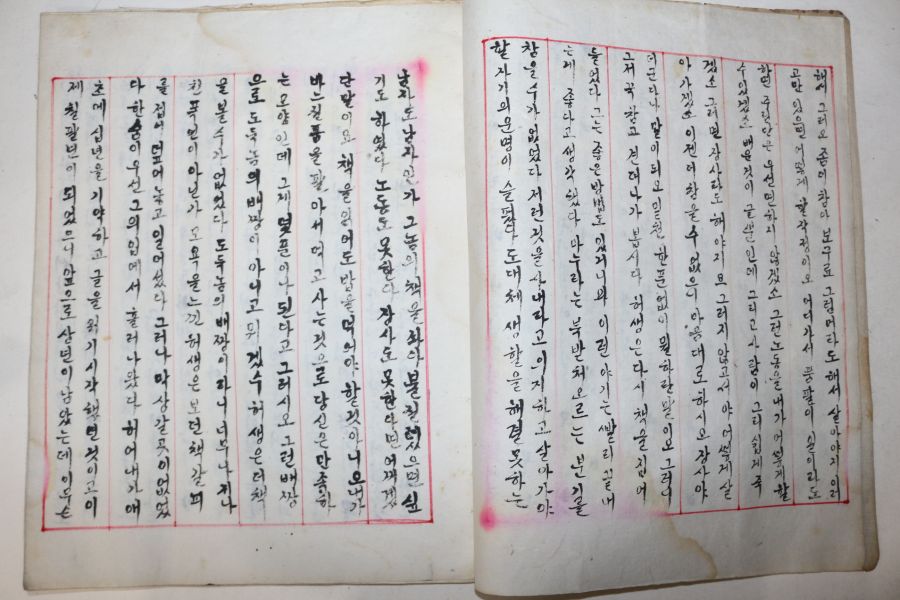 해서 그러오 좀더 참아 보구료 그럼 머라도 해서 살아야지 이러
고만 있으면 어떻게 할 작정이오 어디가서 품팔이 이라도
하면 우선 면하지 않겠소 그런 노동을 내가 어떻게 할
수 있겠소 배운 것이 글뿐인데 그리고 사람이 그리 쉽게 죽
겠소 그러면 장사라도 해야지요 그러지 않고서야 어떻게 살
아가겠소 이젠 더 참을 수 없으니 마음대로 하시오 장사야
더군다나 말이 되오 밑천 한푼 없이 뭘 하란 말이오 그러니
그저 꾹 참고 견더나가 봅시다 허생은 다시 책을 집어
들었다 그는 좋은 방법도 있거니와 이런 이야기는 빨리 끝내
는게 좋다고 생각했다 마누라는 북받쳐 오르는 분기를
참을 수가 없었다 저런 것을 사내라고 의지하고 살아가야
할 자기의 운명이 슬펐다 도대체 생활을 해결 못하는
남자도 남자인가 그놈의 책을 좌아 불질렀으면 싶
기도 하였다 노동도 못한다 장사도 못한다면 어떻게
단말이오 책을 읽어도 밥을 먹어야 할것 아니오 내가
바느질품을 팔아서 먹고 사는것으로 당신은 만족하
는 모양인데 그게 몇푼이나 된다고 그러시오 그런 배짱
으로 도둑놈의 배짱이 아니고 뭐겠수 허생은 더 책
을 볼수가 없었다 도둑놈의 배짱이라니 너무나 지나
친 폭언이 아닌가 모욕을 느낀 허생은 보던 책갈피
를 접어 덮어놓고 일어섰다 그러나 막상 갈곳이 없었
다 한숨이 우선 그의 입에서 흘러나왔다 허어 내가 애
초에 십년을 기약하고 글을 읽기 시작했던 것이 고이
제 칠팔년이 되었으니 앞으로 삼년이 남았는데 이루는